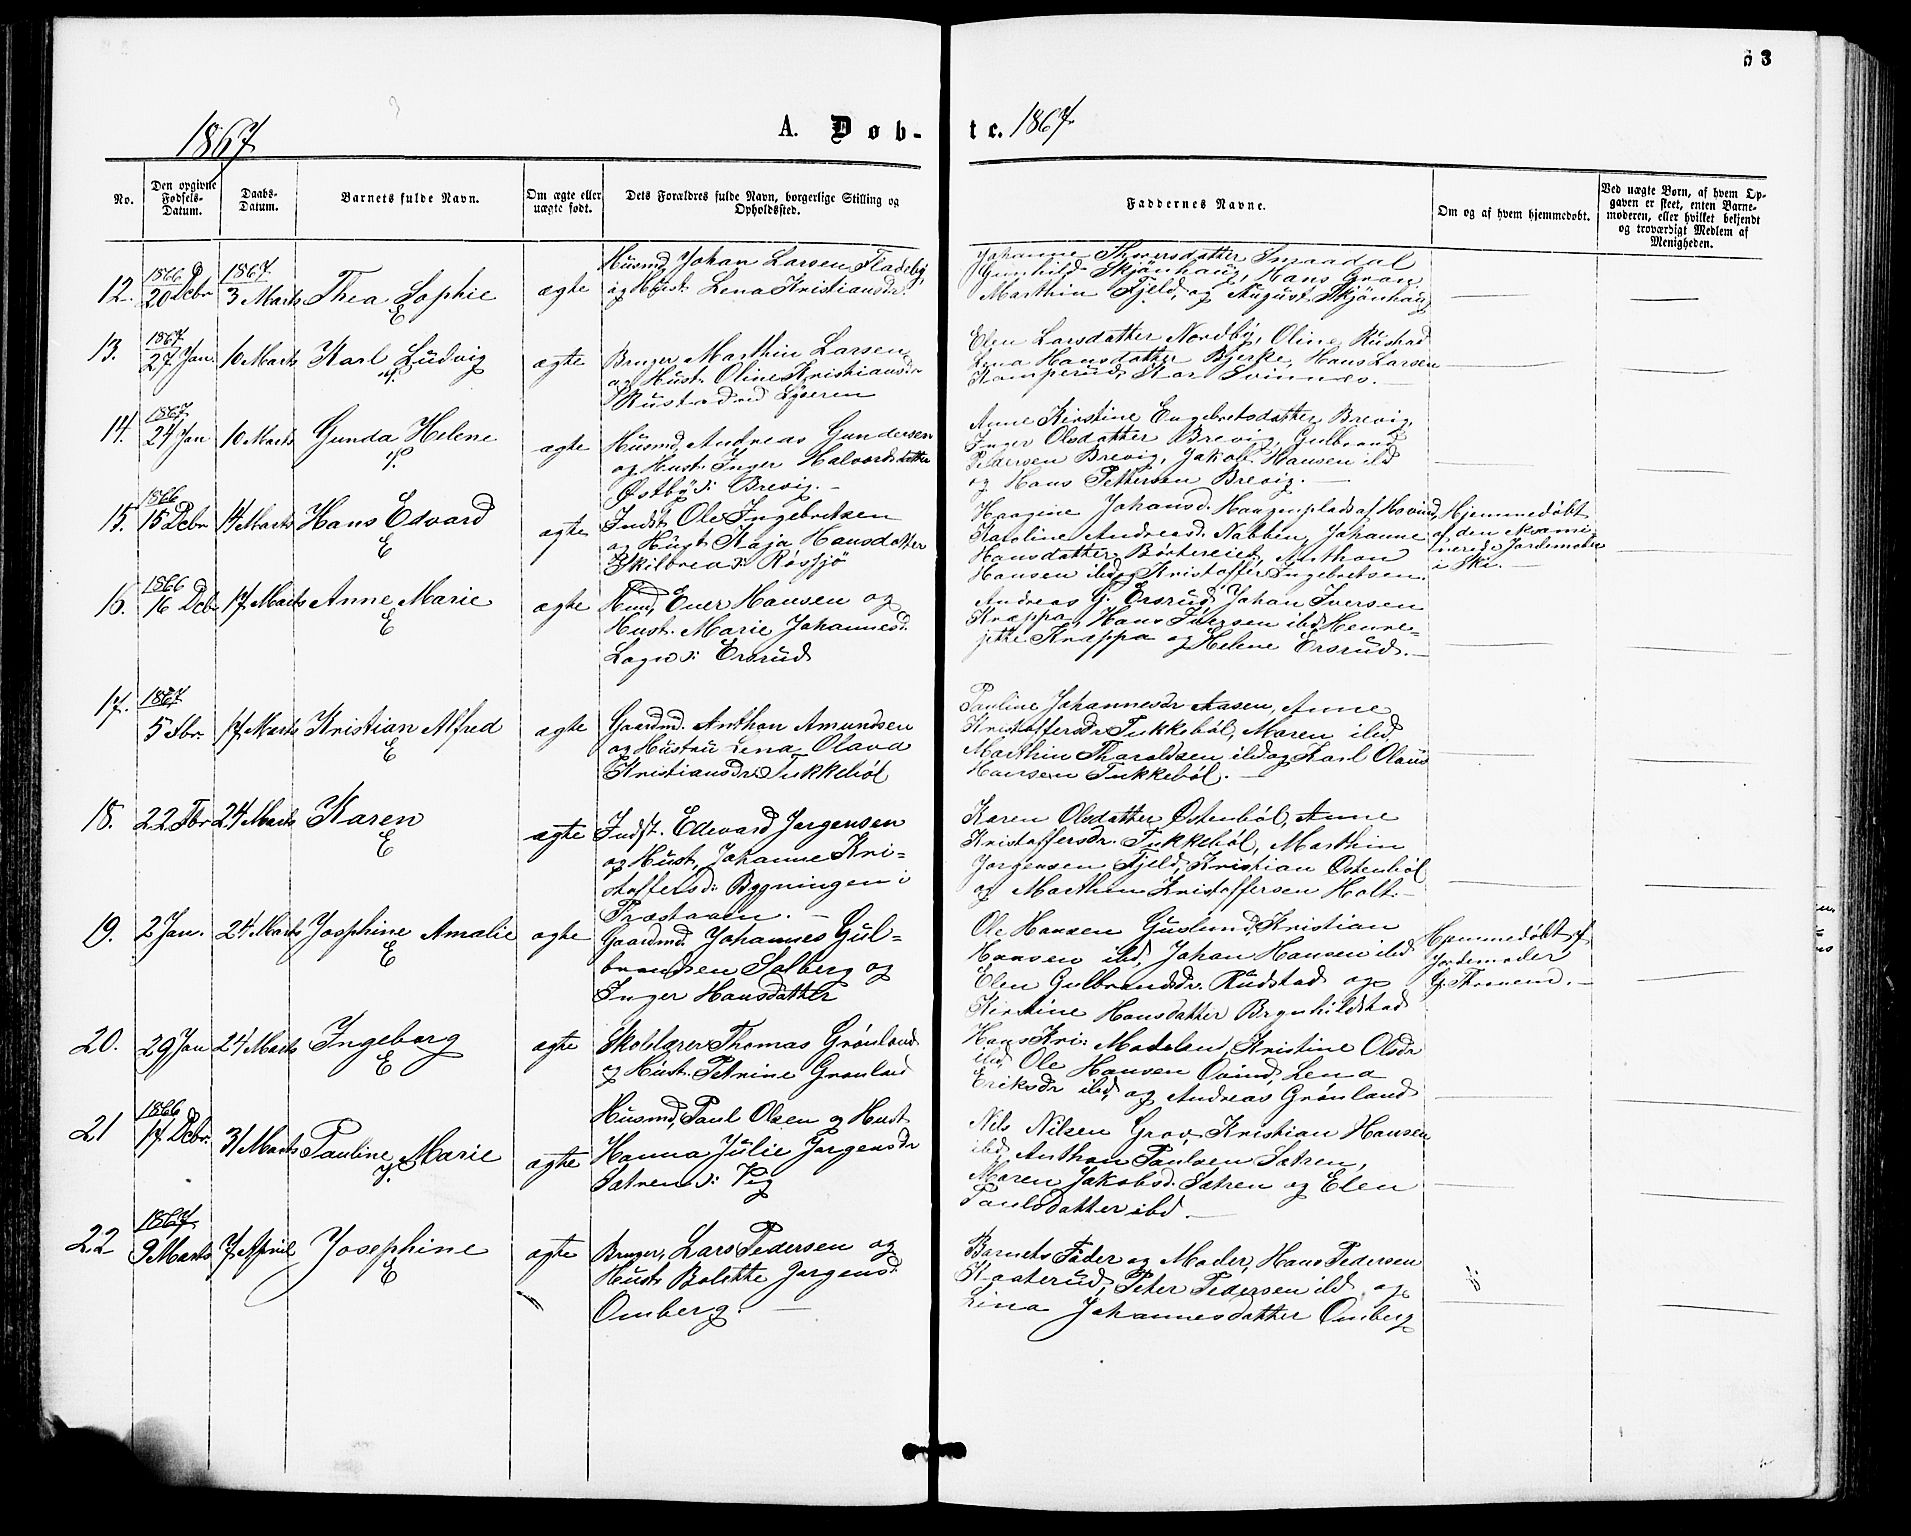 63
1867
A. Døb-
te. 1867.
No.
Den opgivne Fødsels-Datum.
Daabs-Datum.
Barnets fulde Navn.
Om ægte eller uægte født.
Dets Forældres fulde Navn, borgerlige Stilling og Opholdssted.
Faddernes Navne.
Om og af hvem hjemmedøbt.
Ved uægte Børn, af hvem Opgaven er skeet, enten Barnemoderen, eller hvilket bekjendt og troværdigt Medlem af Menigheden.
12. 1866 20 Dcbr 1867. 3 Marts Thea Sophie E ægte
Husmd Johan Larsen Fladeby
og Hust. Lena Kristiansdr.
Johanne Thorersdatter Smaadal
Gunhild Skjönhaug, Hans Gran,
Marthin Fjeld, og August Skjönhaug
13. 1867. 27 Jan. 10 Marts Karl Ludvig ægte
Bruger Marthin Larsen
og Hust. Oline Kristiansdr
Rustad ved Lyseren
Elen Larsdatter Nordby, Oline Rustad
Lena Hansdatter Bjerke, Hans Larsen
Kamperud, Kar Svinnes.
14. 1867 24 Jan 10 Marts Gunda Helene ægte
Husmd Andreas Gundersen
og Hust. Inger Halvorsdatter
Østby s: Brevig. —
Anne Kirstine Engebretsdatter Brevig,
Inger Olsdatter Brevig, Gulbrand
Pedersen Brevig, Jakob Hansen ibd
og Hans Pettersen Brevig. —
15. 1866 15 Dcbr 14 Marts Hans Edvard E ægte
Indst. Ole Ingebretsen
og Hust. Kaja Hansdatter
Skilbred s: Røssjö
Haagine Johansd. Haugenplads af Hovind,
Karoline Andreasd. Nabben, Johanne
Hansdatter Börtereiet, Anthon
Hansen ibd og Kristoffer Ingebretsen.
Hjemmedøbt
af den exami-
nerede Jordemoder
i Ski. —
16. 1866 16 Dcbr 17 Marts Anne Marie E ægte
Husmd, Ever Hansen og
Hust. Marie Johannesd.
Lagns: Ersrud
Andreas G. Ersrud, Johan Iversen
Krappa, Hans Iversen ibd, Henre-
jette Krappa og Helene Ersrud. —
17. 1867 5 Fbr. 17 Marts Kristian Alfred E ægte
Gaardmd. Anthon Amundsen
og Hustru Lena Olava
Kristiansdr. Tukkeböl
Pauline Johannesdr Aasen, Anne
Kristoffersdr Tukkeböl, Maren ibd,
Marthin Tharaldsen ibd og Karl Olaus
Hansen Tukkeböl. —
18. 22 Fbr 24 Marts Karen E ægte
Indst. Edevard Jorgensen
og Hust, Johanne Kri-
stoffersd: Bygningen i
Præstaaen. —
Karen Olsdatter Östenböl, Anne
Kristoffersdr. Tukkeböl, Marthin
Jorgensen Fjeld, Kristian Östenböl
og Marthin Kristoffersen Holt. —
19. 2 Jan. 24 Marts Josephine Amalie E ægte
Gaardmd Johannes Gul-
brandsen Solberg og
Inger Hansdatter
Ole Hansen Guslund, Kristian
Hansen ibd, Johan Hansen ibd
Elen Gulbrandsdr. Rudstad og
Kirstine Hansdatter Brynhildstad
Hjemmedøbt af
Jordemoder
G. Thronem. —
20. 29 Jan 24 Marts Ingeborg E ægte
Skolelærer Thomas Grønland
og Hust. Petrine Grønland
Hans Kri: Madelen, Kristine Olsdr
ibd, Ole Hansen Oaind, Lena
Eriksdr ibd, og Andreas Grønland
21 1866 17 Dcbr. 31 Marts Pauline Marie ægte
Husmd, Paul Olsen og Hust
Hanna Julie Jorgensdr
Sætren s: Vig
Nils Nilsen Grav, Kristian Hansen
ibd, Anthon Paulsen Sætren,
Maren Jakobsd. Sætren og Elen
Paulsdatter ibd —
22 1867. 9 Marts 7 April Josephine E ægte
Bruger, Lars Pedersen og
Hust. Bolette Jorgensd:
Omberg. —
Barnets Fader og Moder, Hans Pedersen
Kaaterud, Peter Pedersen ibd og
Lina Johannesdatter Omberg